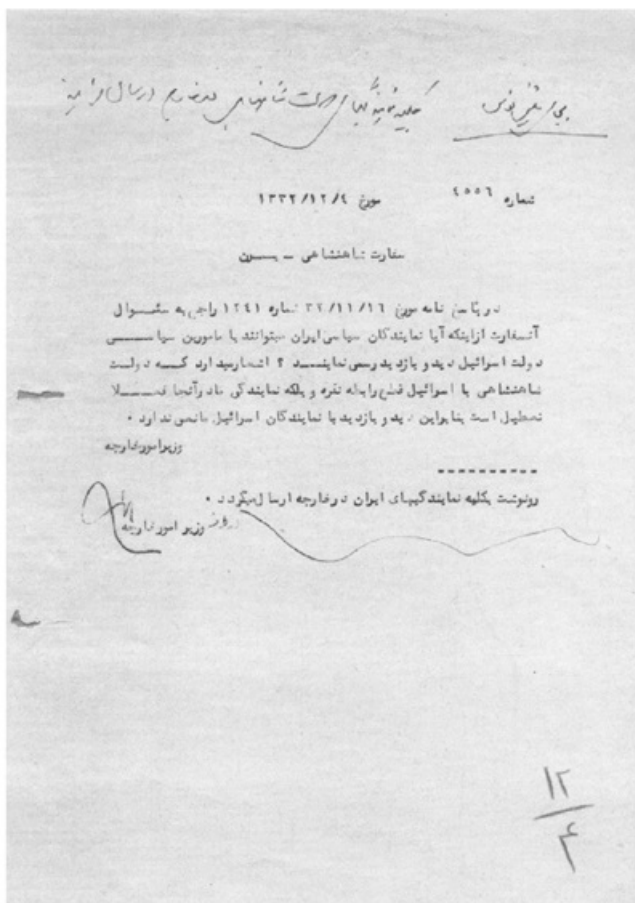 کلیه نمایندگیهای دولت شاهنشاهی در خارجه ارسال فرمایید
شماره ۴۵۵٦ مورخ ۱۳۳۲/۱۲/۴
سفارت شاهنشاهی ـ بـــرن
در پاسخ نامه مورخ ۳۲/۱۱/۱٦ شماره ۱۲۴۱ راجع به سئــوال
آنسفارت ازاینکه آیا نمایندگان سیاسی ایران میتوانند با مامورین سیاســی
دولت اسرائیل دید و بازدید رسمی نماینــد ؟ اشعار میدارد کــه دولــت
شاهنشاهی با اسرائیل قطع رابطه نکرده بلکه نمایندگی ما در آنجا فعـــلا
تعطیل است بنابراین دید و بازدید با نمایندگان اسرائیل مانعی ندارد ۰
وزیر امور خارجه
ـ ـ ـ ـ ـ ـ ـ ـ ـ ـ
رونوشت بکلیه نمایندگیهای ایران در خارجه ارسال میگردد ۰
وزیر امور خارجه
۱۲
۴